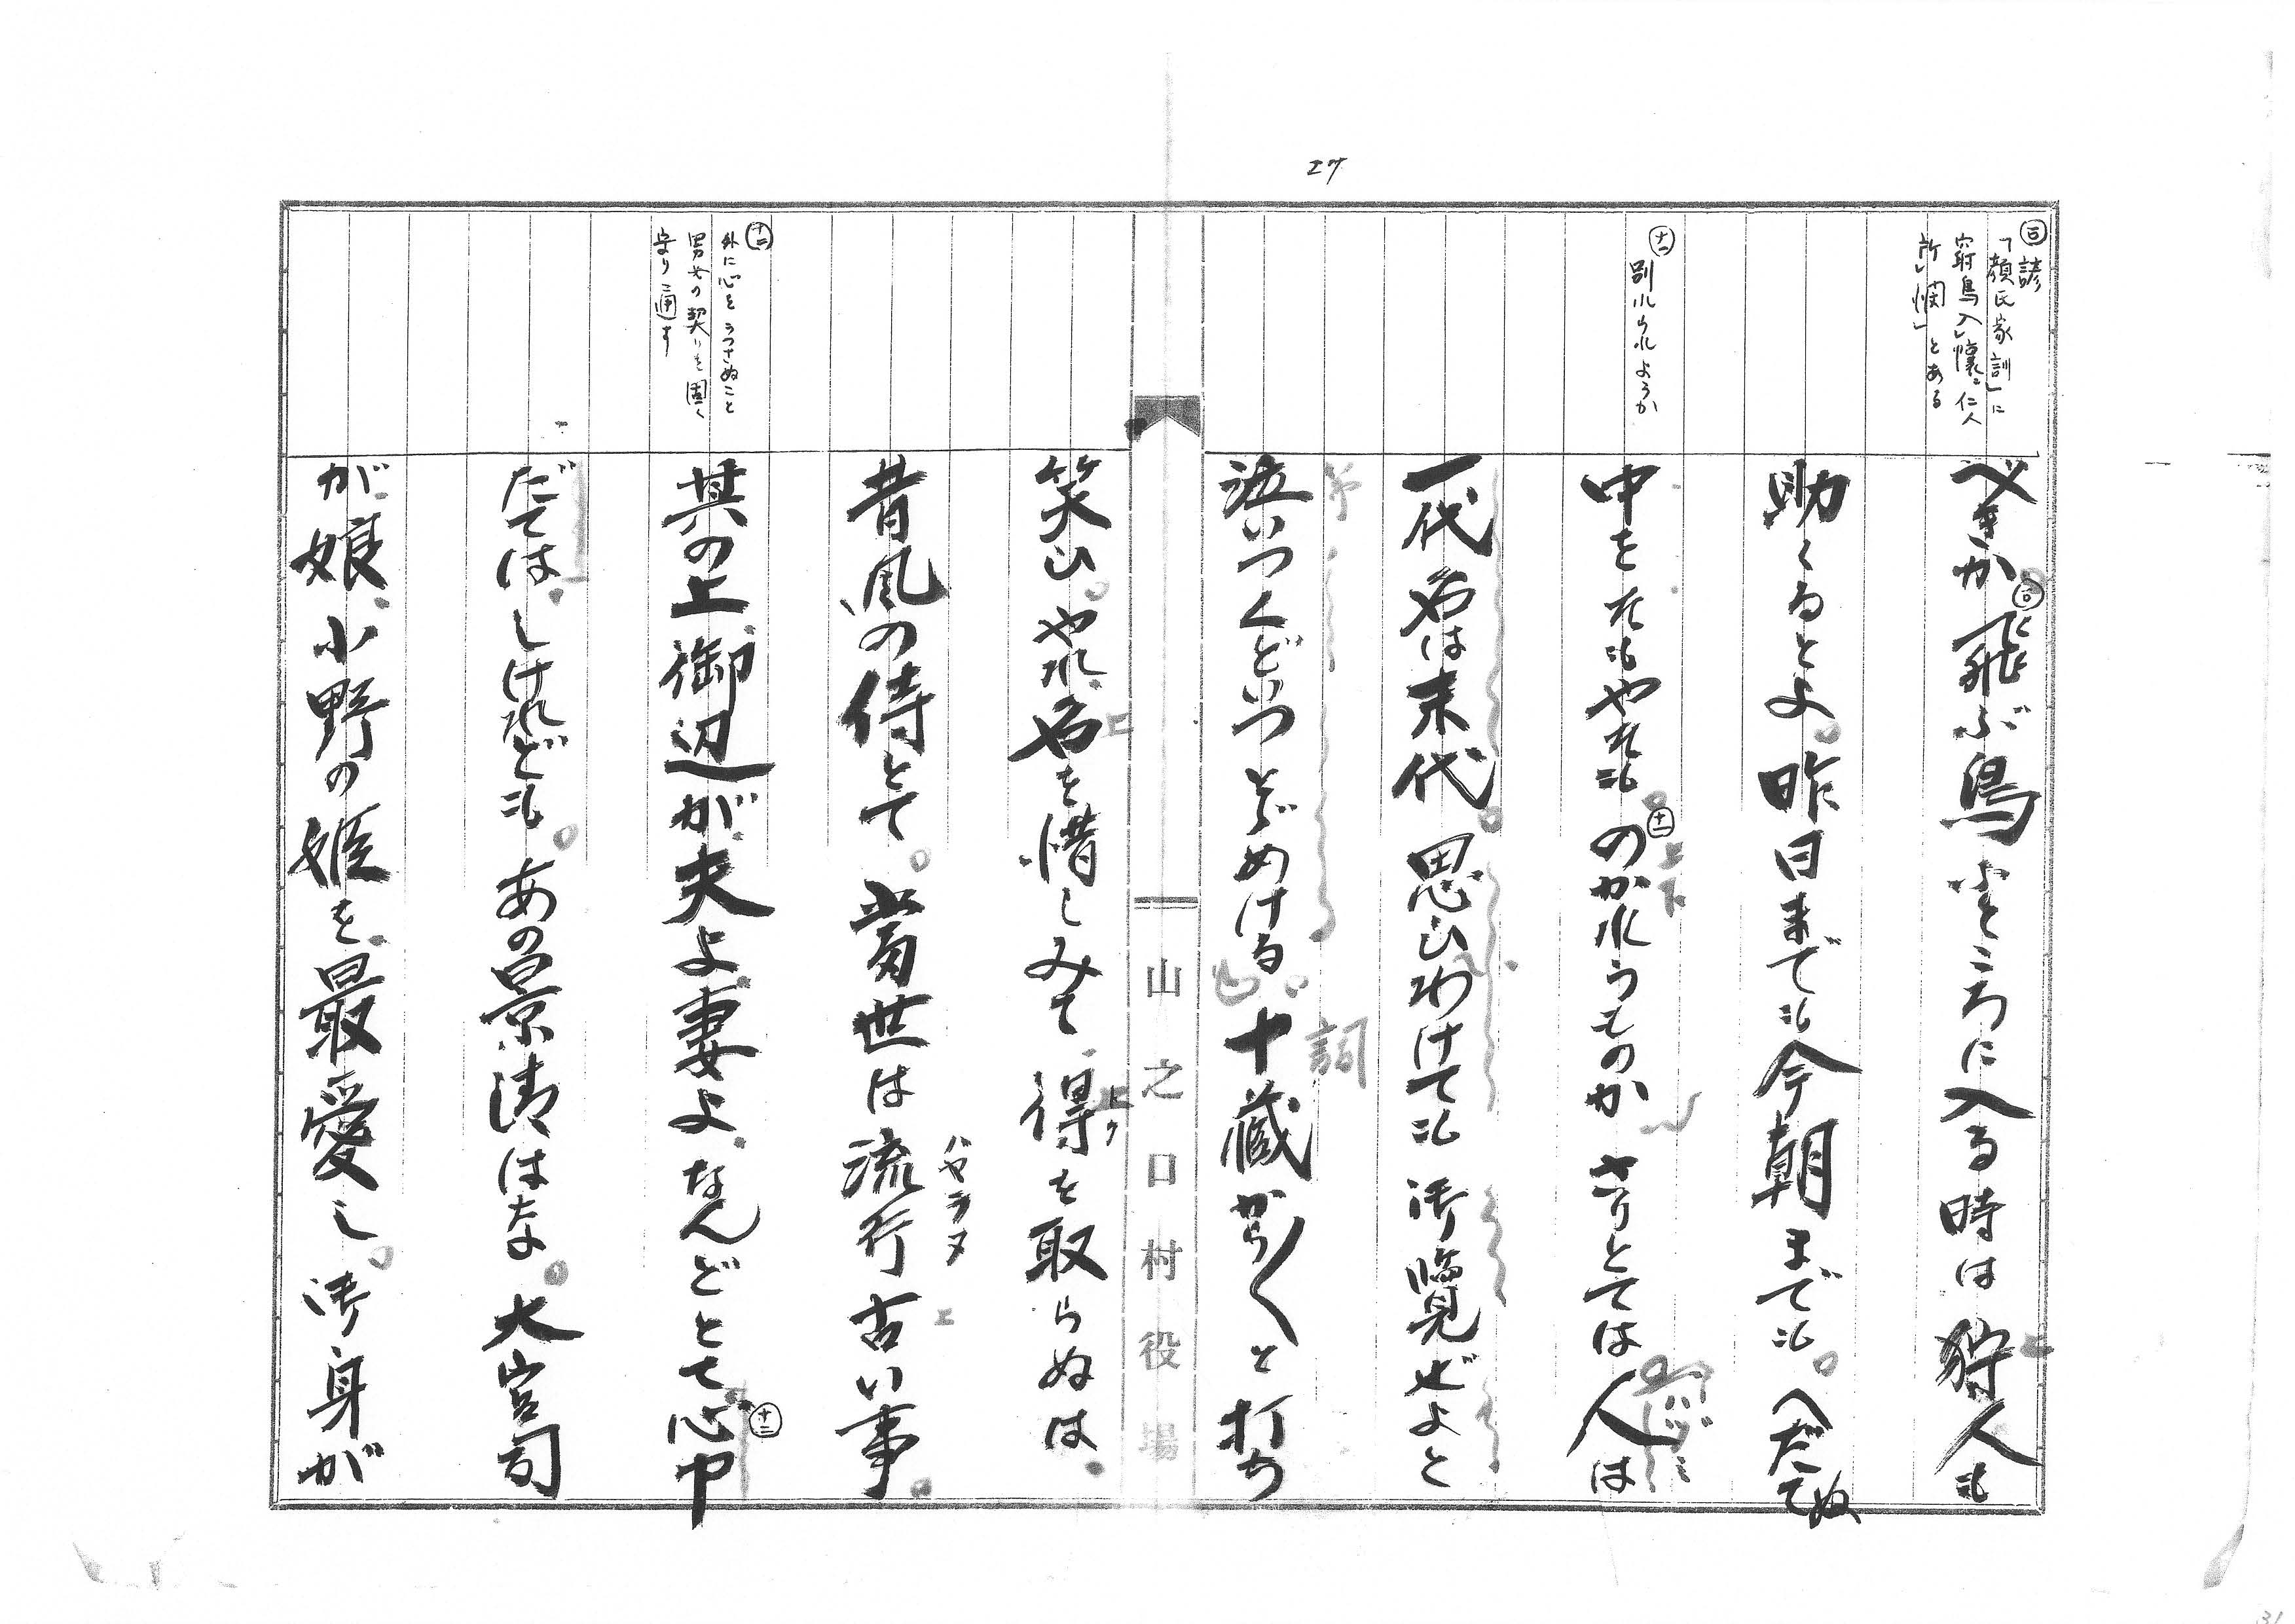 27
㊉ 諺
「顔氏家訓」に
窮鳥入レ懐ニ仁人
所レ憫」とある
べきか㊉飛ぶ鳥ふところに入る時は狩人も
助くるとよ。昨日までも今朝までも。へだてぬ
中をそもやそも。(十一)のかれうものか さりとては人は
(十一) 別れられようか
一代名は末代。思ひわけても御覧ぜよと
泣いつくどいつとゞめける。
詞
十蔵から〳〵と打ち
山之口村役場
笑ひ。やれ名を惜しみて得を取らぬは
トク
昔風の侍とて。当世は流行古い事。
ハヤラヌ
(十二) 外に心をうつさぬこと
男女の契りを固く
守り通す
其の上御辺が夫よ妻よなんどとて心中(十二)
だては。しけれども。あの景清はな。大宮司
が娘小野の姫を最愛し。御身が